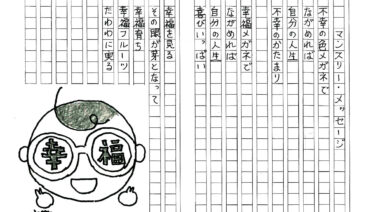 マンスリー・メッセージ
不幸の色メガネで
ながめれば
自分の人生
不幸のかたまり
幸福メガネで
ながめれば
自分の人生
喜びいっぱい
幸福を見る
その眼が芽となって
幸福育ち
幸福フルーツ
たわわに実る
幸福